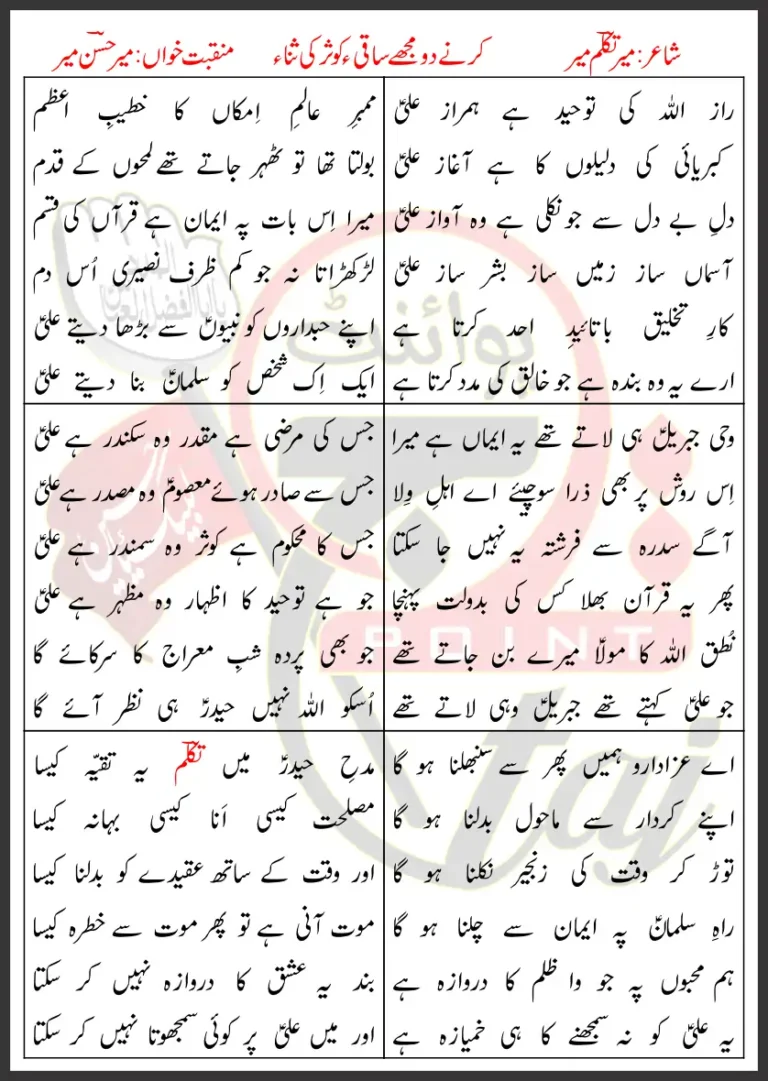 شاعر: میر تکلمؔ میر
کرنے دو مجھے ساقیٔ کوثر کی ثناء
منقبت خواں: میر حسنؔ میر
راز اللہ کی توحید ہے ہمراز علیؑ
کبریائی کی دلیلوں کا ہے آغاز علیؑ
دلِ بے دل سے جو نکلی ہے وہ آواز علیؑ
آسماں ساز زمیں ساز بشر ساز علیؑ
کارِ تخلیق باتائیدِ احد کرتا ہے
ارے یہ وہ بندہ ہے جو خالق کی مدد کرتا ہے
ممبرِ عالمِ اِمکاں کا خطیبِ اعظم
بولتا تھا تو ٹھہر جاتے تھے لمحوں کے قدم
میرا اِس بات پہ ایمان ہے قرآں کی قسم
لڑکھڑاتا نہ جو کم ظرف نصیری اُس دم
اپنے حبداروں کو نبیوںؑ سے بڑھا دیتے علیؑ
ایک اِک شخص کو سلمانؑ بنا دیتے علیؑ
وحی جبریلؑ ہی لاتے تھے یہ ایماں ہے میرا
اِس روش پر بھی ذرا سوچیئے اے اہلِ وِلا
آگے سدرہ سے فرشتہ یہ نہیں جا سکتا
پھر یہ قرآن بھلا کس کی بدولت پہنچا
نُطق اللہ کا مولاؑ میرے بن جاتے تھے
جو علیؑ کہتے تھے جبریلؑ وہی لاتے تھے
جس کی مرضی ہے مقدر وہ سکندر ہے علیؑ
جس سے صادر ہوئے معصومؑ وہ مصدر ہے علیؑ
جس کا محکوم ہے کوثر وہ سمندر ہے علیؑ
جو ہے توحید کا اظہار وہ مظہر ہے علیؑ
جو بھی پردہ شبِ معراج کا سرکائے گا
اُسکو اللہ نہیں حیدرؑ ہی نظر آئے گا
اے عزادارو ہمیں پھر سے سنبھلنا ہو گا
اپنے کردار سے ماحول بدلنا ہو گا
توڑ کر وقت کی زنجیر نکلنا ہو گا
راہِ سلمانؑ پہ ایمان سے چلنا ہو گا
ہم محبوں پہ جو وا ظلم کا دروازہ ہے
یہ علیؑ کو نہ سمجھنے کا ہی خمیازہ ہے
مدحِ حیدرؑ میں تکلمؔ یہ تقیّہ کیسا
مصلحت کیسی اَنا کیسی بہانہ کیسا
اور وقت کے ساتھ عقیدے کو بدلنا کیسا
موت آنی ہے تو پھر موت سے خطرہ کیسا
بند یہ عشق کا دروازہ نہیں کر سکتا
اور میں علیؑ پر کوئی سمجھوتا نہیں کر سکتا
پوائنٹ
POINT
taj